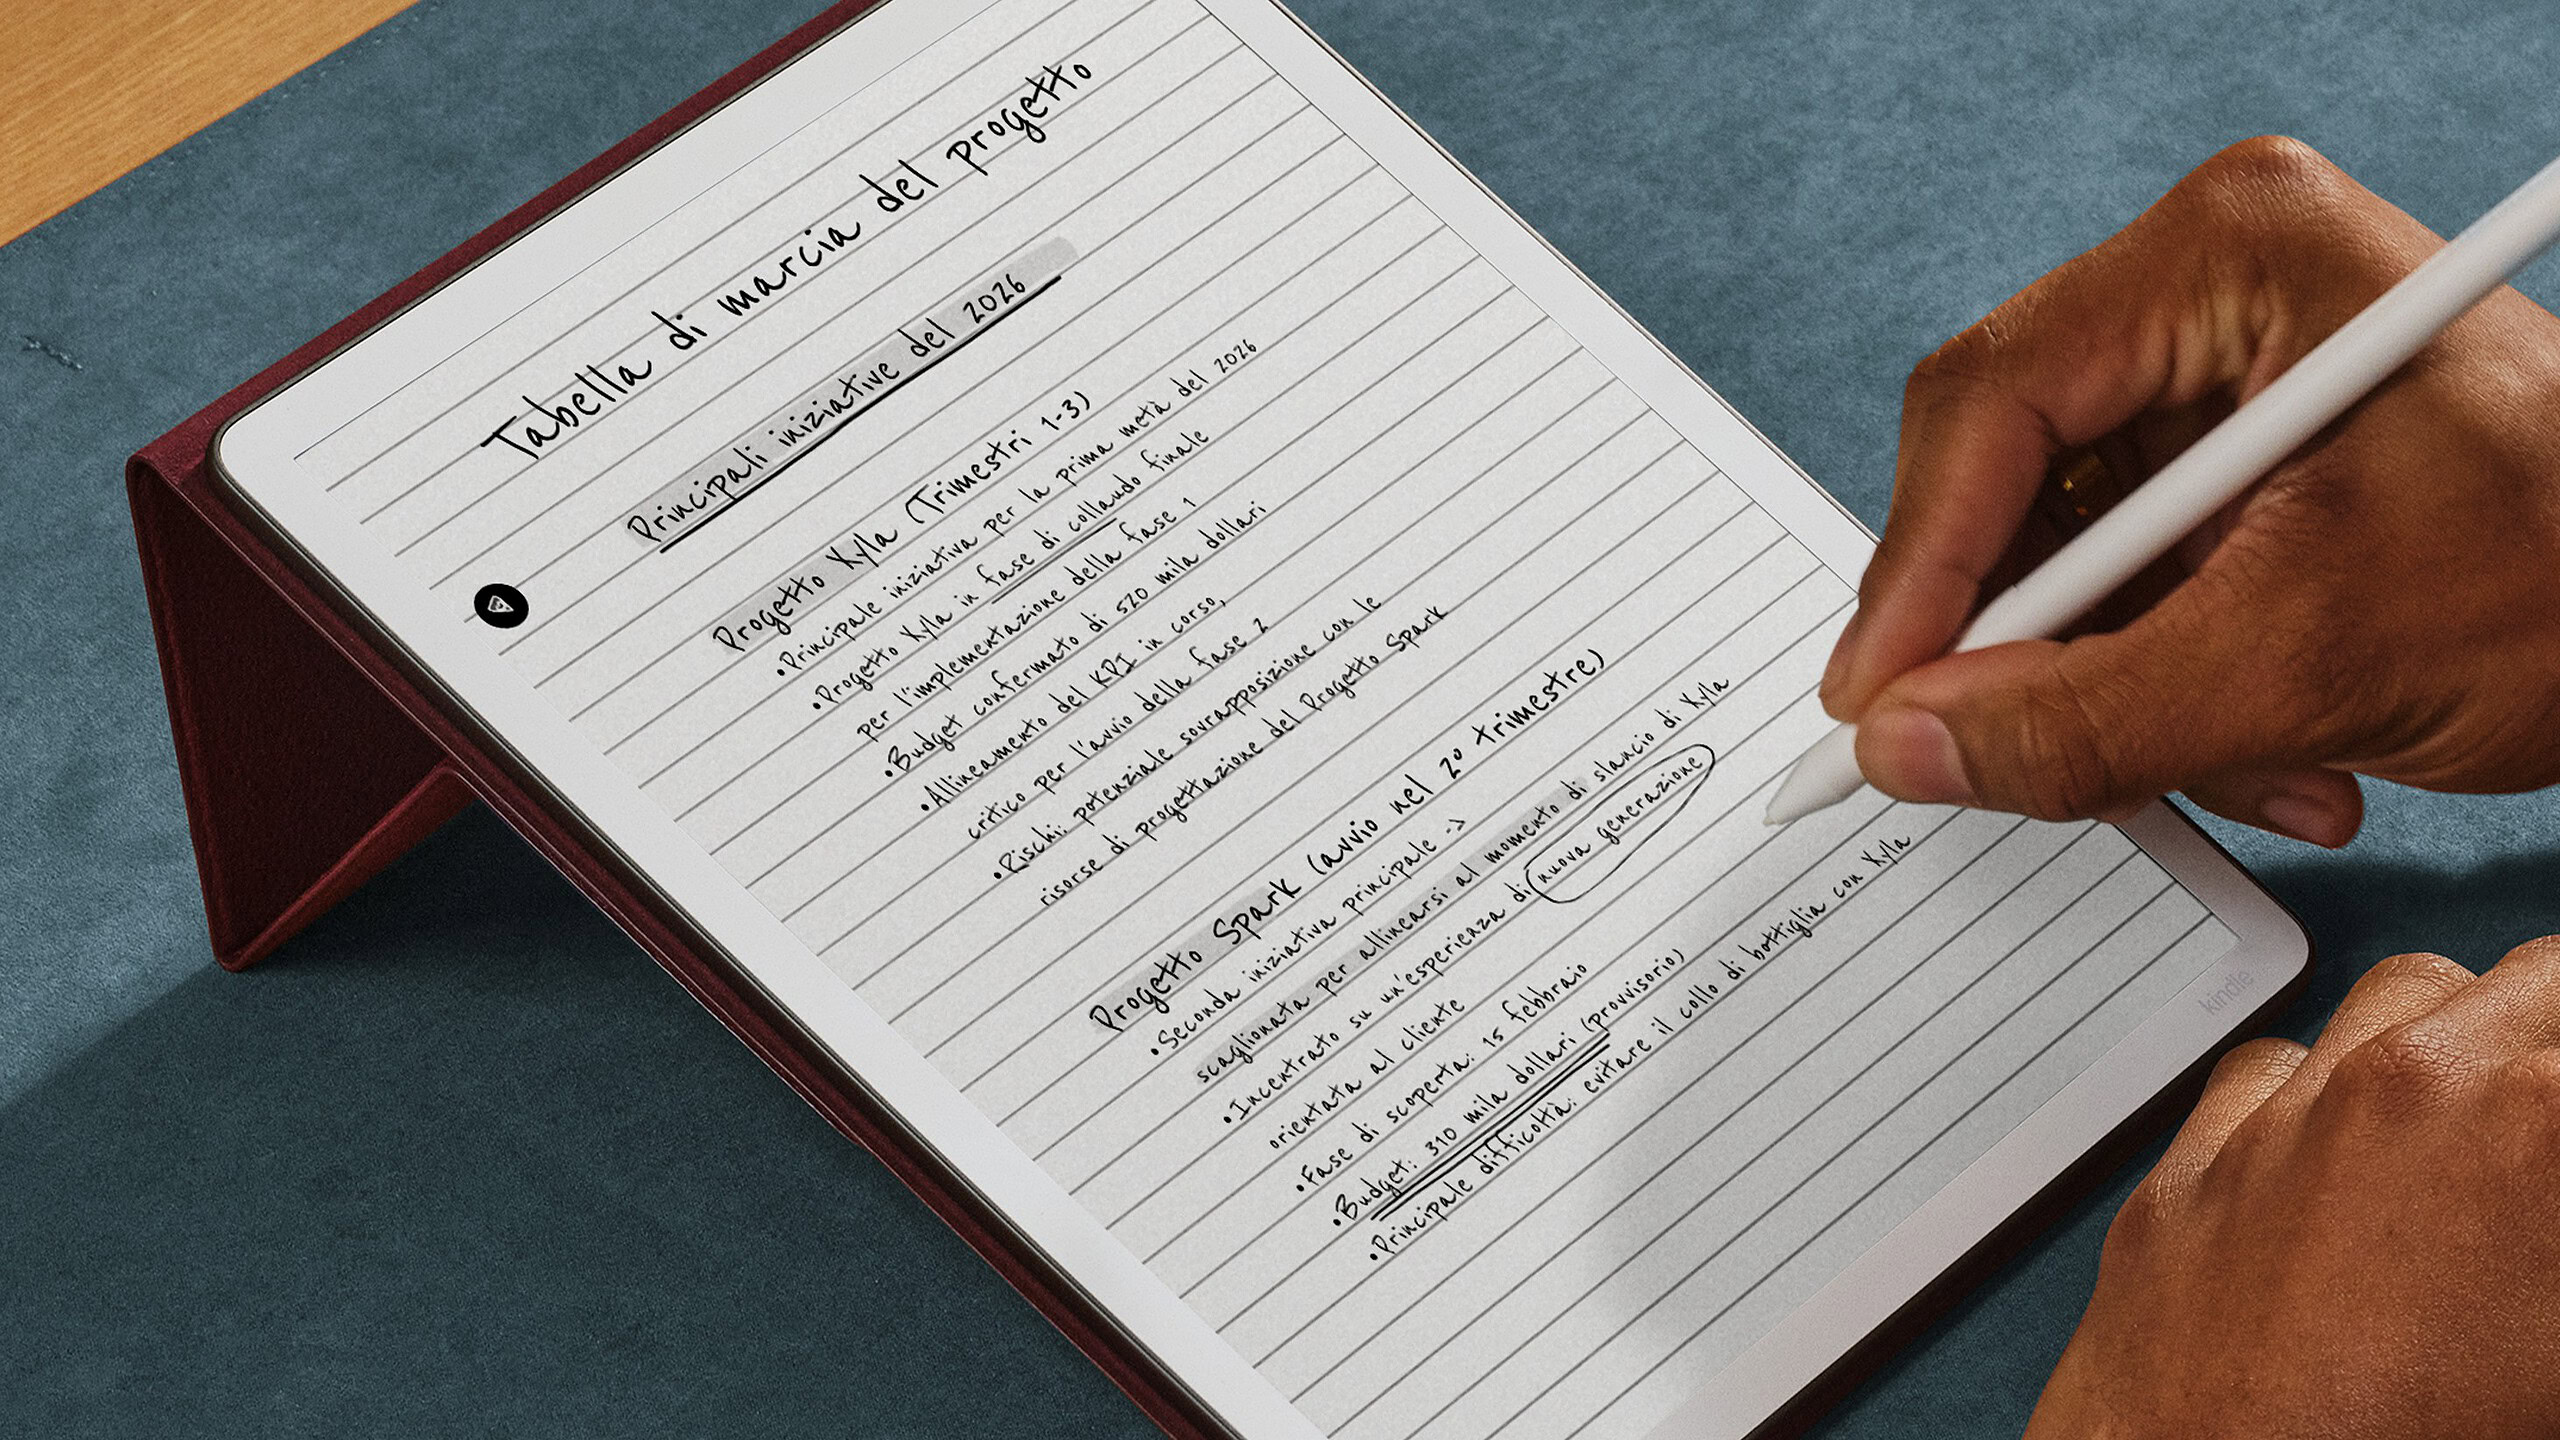 Tabella di marcia del progetto
Principali iniziative del 2026
Progetto Xyla (Trimestri 1-3)
•Principale iniziativa per la prima metà del 2026
•Progetto Xyla in fase di collaudo finale
per l'implementazione della fase 1
•Budget confermato di 520 mila dollari
•Allineamento del KPI in corso,
critico per l'avvio della fase 2
•Rischi: potenziale sovrapposizione con le
risorse di progettazione del Progetto Spark
Progetto Spark (avvio nel 2º trimestre)
•Seconda iniziativa principale ->
scaglionata per allinearsi al momento di slancio di Xyla
•Incentrato su un'esperienza di nuova generazione
orientata al cliente
•Fase di scoperta: 15 febbraio
•Budget: 310 mila dollari (provvisorio)
•Principale difficoltà: evitare il collo di bottiglia con Xyla
kindle